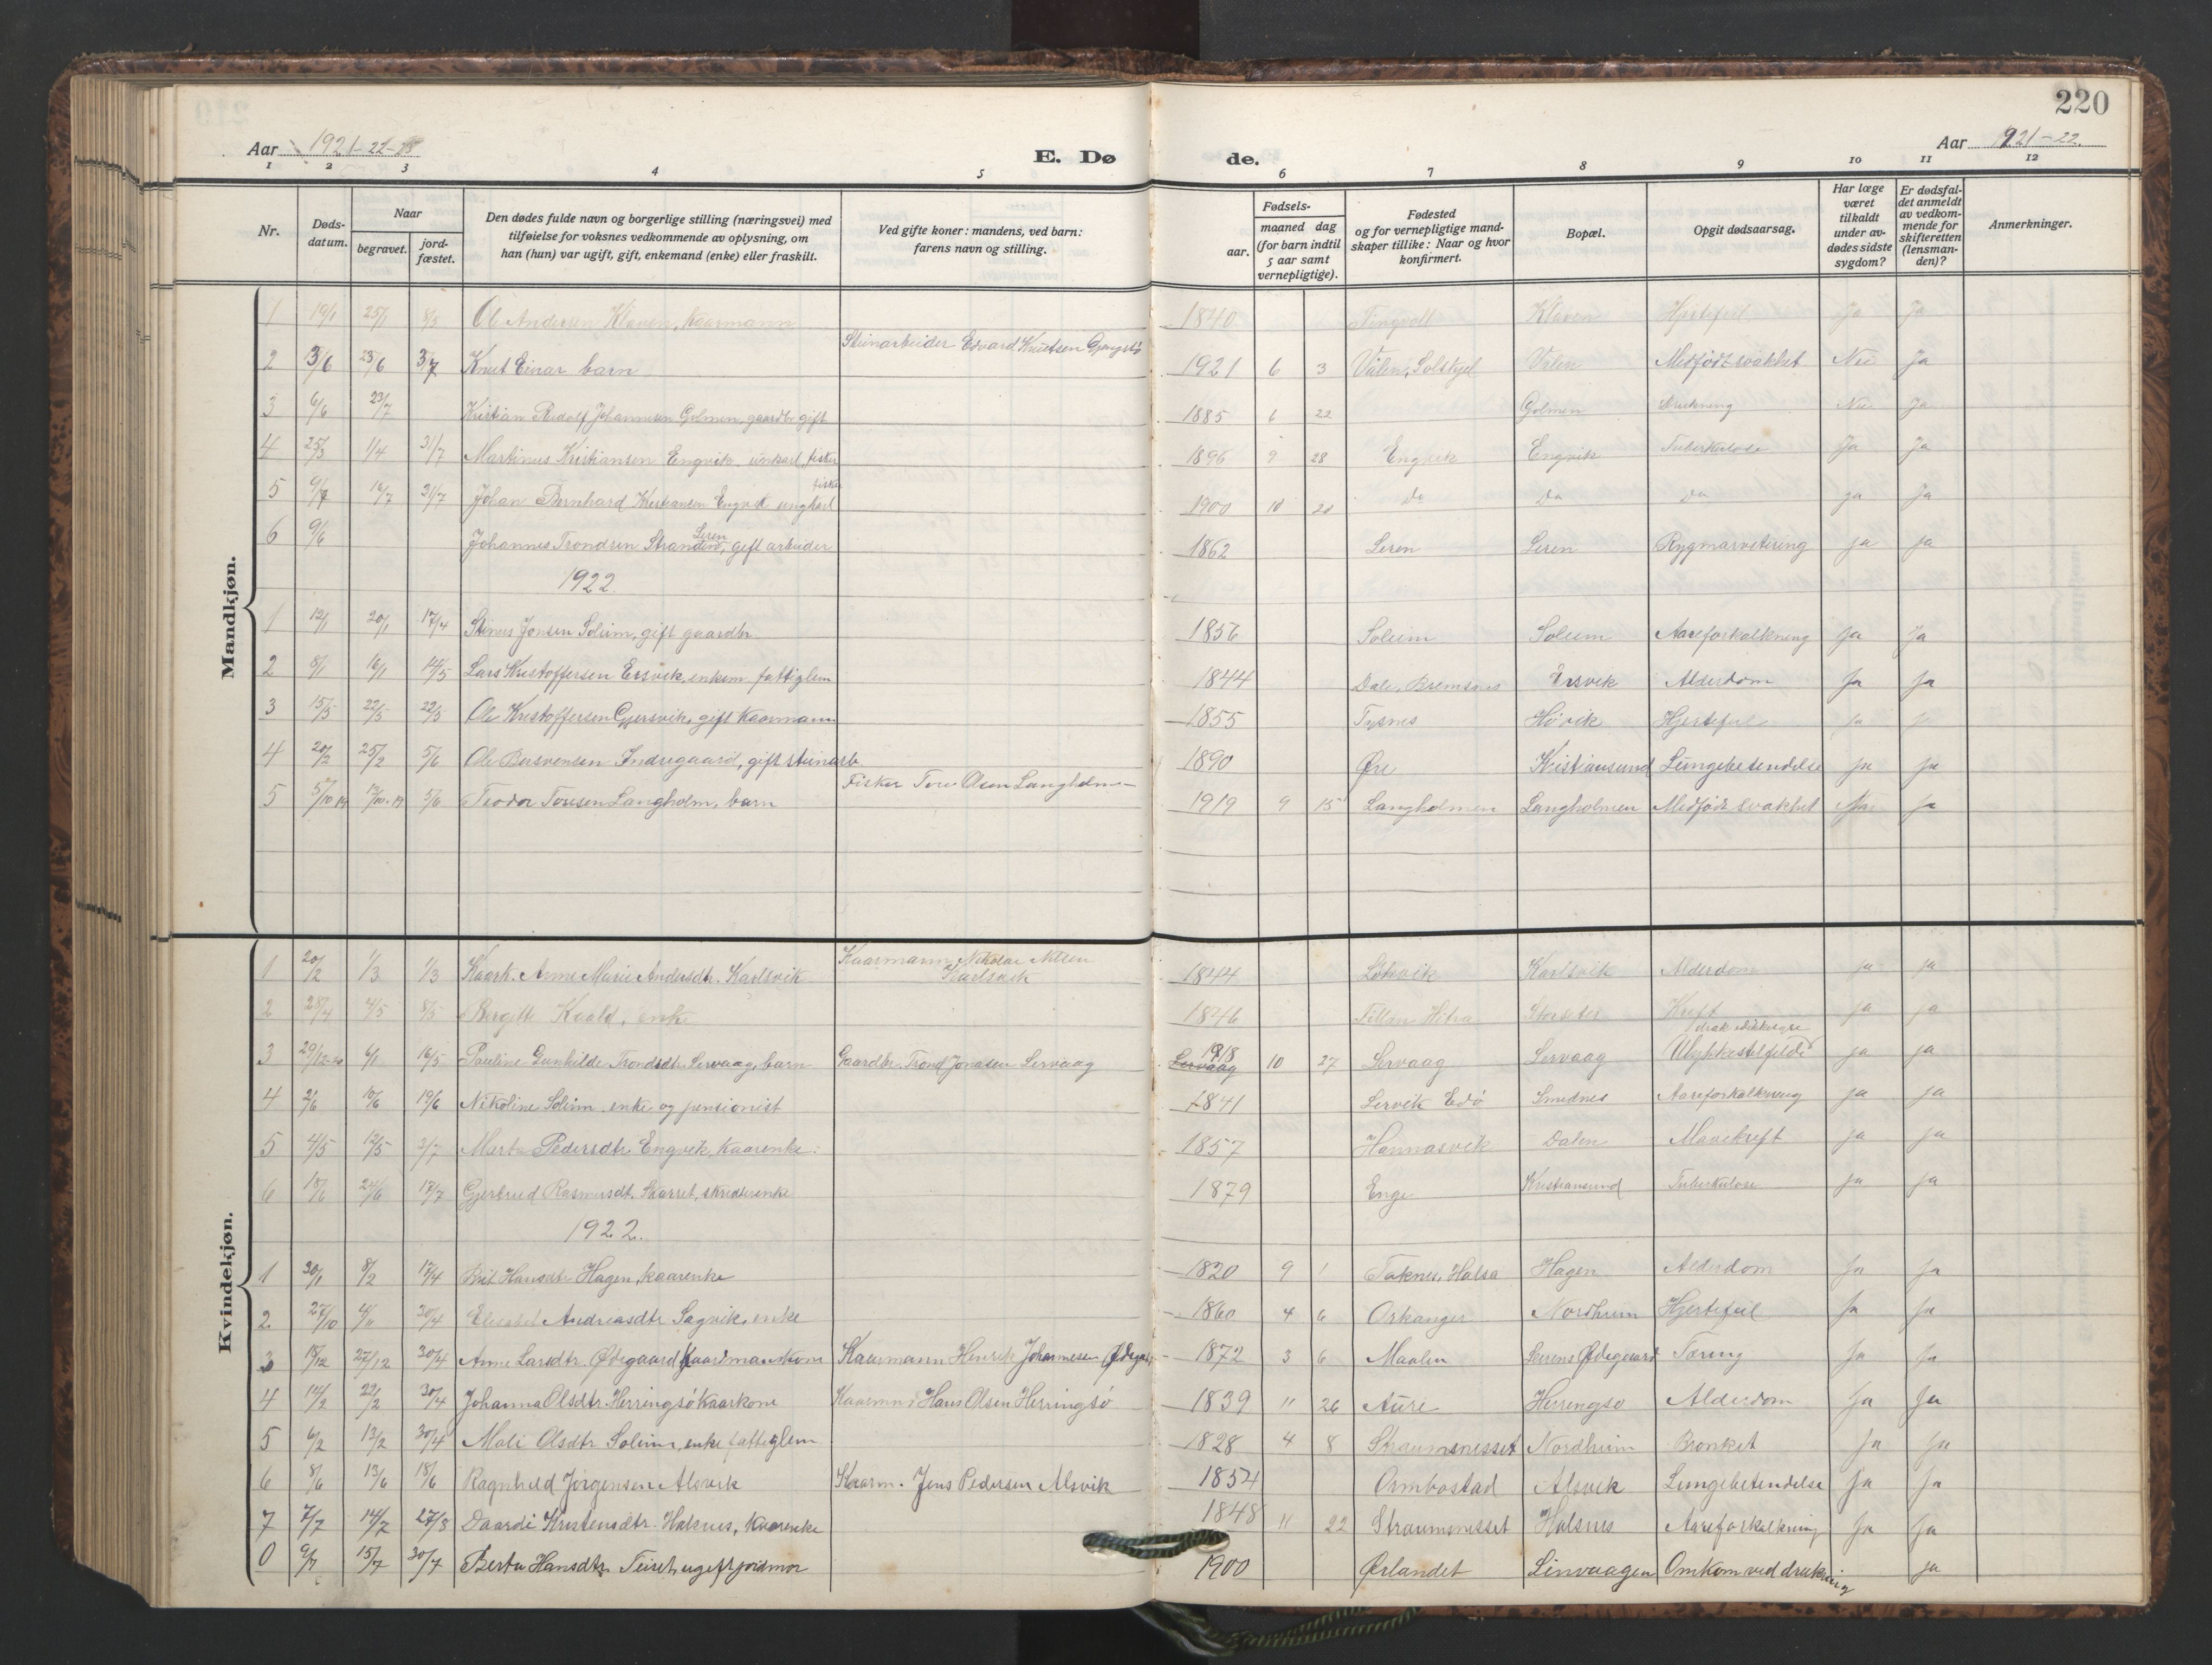 220
Aar 1921-22-23
E. Dø
de.
Aar 1921-22.
1 2 3 4 5 6 7 8 9 10 11 12
Nr.
Døds-
datum.
Naar
begravet.
jord-
fæstet.
Den dødes fulde navn og borgerlige stilling (næringsvei) med
tilføielse for voksnes vedkommende av oplysning, om
han (hun) var ugift, gift, enkemand (enke) eller fraskilt.
Ved gifte koner: mandens, ved barn:
farens navn og stilling.
aar.
Fødsels-
maaned dag
(for barn indtil
5 aar samt
vernepligtige).
Fødested
og for vernepligtige mand-
skaper tillike: Naar og hvor
konfirmert.
Bopæl.
Opgit dødsaarsag.
Har læge
været
tilkaldt
under av-
dødes sidste
sygdom?
Er dødsfal-
det anmeldt
av vedkom-
mende for
skifteretten
(lensman-
den)?
Anmerkninger.
Mandkjøn.
1 19/1 25/1 8/5 Ole Andersen Klaven, kaarmann 1840 Tingvoll Klaven Hjertefeil Ja Ja
2 3/6 23/6 3/7 Knut Einar barn Steinarbeider Edvard Knutsen 1921 6 3 Vaalen, Solskjel Vaalen Medfødt svakhet Nei Ja
3 6/6 23/7 Kristian Rudolf Johannesen Golmen, gaardbr gift 1885 6 22 Golmen Drukning Nei Ja
4 25/3 1/4 31/7 Martinus Kristiansen Engvik, unkarl, fisker 1896 9 28 Engvik Engvik Tuberkulose Ja Ja
5 9/7 16/7 31/7 Johan Bernhard Kristiansen Engvik ungkarl fisker 1900 10 20 Do Do Do ja Ja
6 9/6 Johannes Trondsen Stranden, Leren gift arbeider 1862 Leren Leren Rygmarvstæring ja ja
1922
1 12/1 20/1 17/4 Stinus Jonsen Soleim, gift gaardbr. 1856 Soleim Soleim Aareforkalkning Ja Ja
2 8/1 16/1 14/5 Lars Kristoffersen Ersvik, enkem. fattiglem 1844 Dale, Bremsnes Ersvik Alderdom Ja Ja
3 15/5 22/5 22/5 Ole Kristoffersen Gjersvik, gift kaarmann 1855 Tysnes Høvik Hjertefeil ja j
4 20/2 25/2 5/6 Ole Indregaard, gift steinarb 1890 Øre Kristiansund Lungebetendelse ja ja
5 5/10 19 12/10-19 5/6 Teodor Toresen Langholm, barn Fisker Tore Olsen Langholm 1919 9 15 Langholmen Langholmen Medfødt svakhet Nei ja
Kvindekjøn.
1 20/2 1/3 1/3 Kaark. Anne Marie Andersdtr. Karlsvik Kaarmann Nikolai Nilsen Karlsvik 1844 Løkvik Karlsvik Alderdom ja ja
2 28/4 4/5 8/5 Bergitte Kaald, enke 1846 Fillan Hitra Storseter Kreft ja ja
3 29/12-20 6/1 16/5 Pauline Gunhilde Trondsdtr. Lervaag, barn Gaardbr. Trond Jonasen Lervaag Lervaag 1918 10 27 Lervaag Lervaag Ulykkestilfelde ja ja
4 2/6 10/6 19/6 Nikoline Soleim enke og pensionist 1841 Lervik Edø Smednes Aareforkalkning ja ja
5 4/5 12/5 3/7 Marta Pedersdtr. Engvik, kaarenke 1857 Hannasvik Dalen Mavekreft ja ja
6 18/6 24/6 17/7 Gjertrud Rasmusdt. Skarret, skredderenke 1879 Enge Kristiansund Tuberkulose ja ja
1922.
1 30/1 8/2 17/4 Brit Hansdtr Hagen, kaarenke 1820 9 1 Taknes, Halsa Hagen Alderdom Ja Ja
2 27/10 4/11 30/4 Elisabet Andreasdtr Sagvik, enke 1860 4 6 Orkanger Nordheim Hjertefeil Ja ja
3 18/12 27/12 30/4 Anne Larsdtr. Ødegaard kaardmandkone Kaarmann Henrik Johannesen Ødegaard 1872 3 6 Maalen Leirens Ødegaard Tæring Ja ja
4 14/2 22/2 30/4 Johanna Olsdtr. Herringsø kaarkone Kaarmand Hans Olsen Herringsø 1839 11 26 Aure Herringsø Alderdom Ja Ja
5 6/2 13/2 30/4 Mali Olsdtr Soleim, enke fattiglem 1828 4 8 Straumsnesset Nordheim Bronket Ja ja
6 8/6 13/6 18/6 Ragnhild Jørgensen Alsvik Kaarm. Jens Pedersen Alsvik 1854 Ormbostad Alsvik Lungebetendelse Ja Ja
7 7/7 14/7 27/8 Daardi Kristensdtr. Halsnes, Kaarenke 1848 11 22 Straumsnesset Halsnes Aareforkalkning Ja Ja
0 9/7 15/7 30/7 Berta Hansdtr. Teiset ugift jordmor 1900 Ørlandet Linvaagen Omkom ved drukning Ja